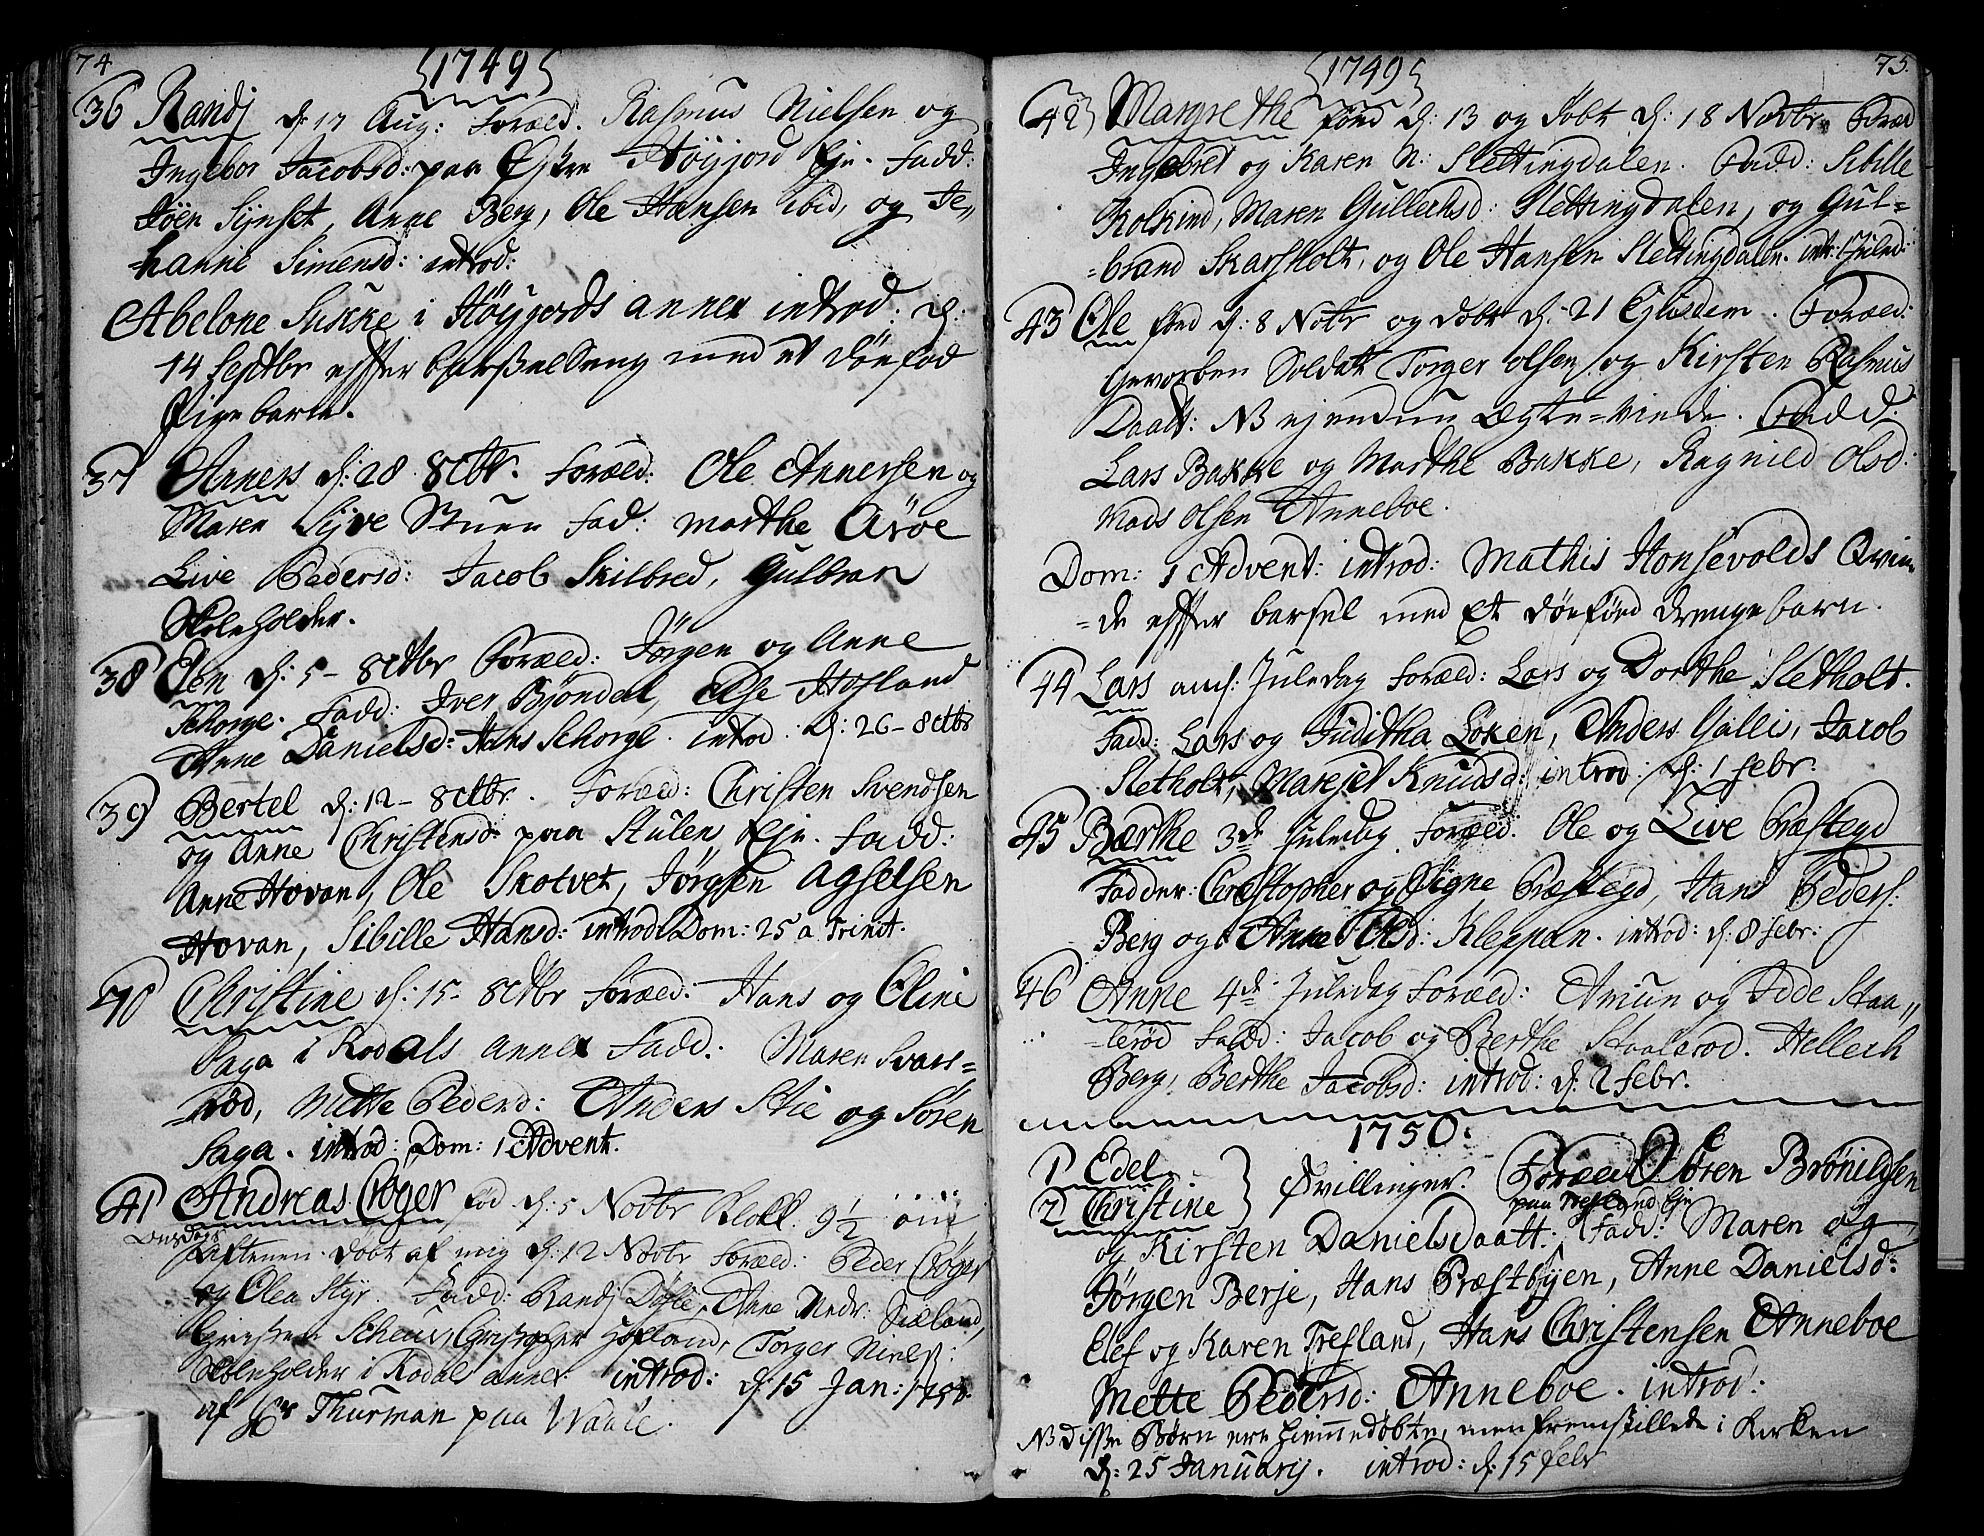 74
1749
36 Randj d: 17 Aug: Foræld. Rasmus Nielsen og
Ingebor Jacobsd: paa Høyjord Eje. Fadd:
Joen Synset, Anne Berg, Ole Hansen ibid, og Je,,
=hanne Simensd: introd:
Abelone Sukke i Høyjords annex introd: d:
14 Septbr effter barsselseng med et dödföd
Pigebarn.
37 Anners d: 28 8ctbr. Foræld: Ole Annersen og
Maren Stuen Fad: Marthe Aroe
Live Pedersd: Jacob Skilbred, Gulbran
Skoleholder.
38 Elen d: 5- 8ctbr Foræld: Jörgen og Anne
Schorge. Fadd: Iver Bjöndal, Else Hofland
Anne Danielsd: Hans Schorge. introd: d: 26-8ctbr
39 Bertel d: 12- 8ctbr. Foræld: Christen Svendsen
og Anne Christensd: paa Stulen Eje. Fadd:
Anne Hovan, Ole Skotvet, Jörgen Agselsen
Hovan, Sibille Hansd: introd Dom: 25 a Trinit.
40 Christine d: 15- 8ctbr Foræld: Hans og Eline
Saga i Rodals annex Fadd: Maren Svars=
=rod, Mette Pedersd: Anders Stie og Sören
Saga. introd: Dom: 1 Advent.
41 Andreas Cröger föd d: 5 Novbr Klokk. 9½ om
Onsdags
Aftenen. döbt af mig d: 12 Novbr Foræld: Peder Cröger
og Olea Styr. Fadd: Randj Döfle, Anne Andr: Siæland,
Christopher Hofland, Torger Niels:
i Rodals annex introd: d: 15 Jan: 1750.
af Hr Thurman paa Waale.
75.
1749
42 Margrethe föed d: 13 og döbt d: 18 Novbr. Foræl
Ingebret og Karen N: Slettingdalen. Fadd: Sibille
Kolkind, Maren Gullechsd: Slettingdalen, og Gul=
=brand Skarsholt, og Ole Hansen Slettingdalen. intr:
43 Ole föed d: 8 Novbr og döbt d: 21 Ejusdem. Foræld:
Gevorben Soldat Torger Olsen og Kirsten Rasmus
Daatt: NB ejendum Ægte=Viede. Fadd:
Lars Bakke og Marthe Bakke, Ragnild Olsd:
Mads Olsen Anneboe.
Dom: 1 Advent: introd: Mathis Honsevolds Qvin
=de effter barsel med Et dödföed drengebarn.
44 Lars Juledag Foræld: Lars og Dorthe Sletholt.
Fadd: Lars og Juditha Loken, Anders Galli, Jacob
Sletholt, Marejet Knudsd: introd: d: 1 febr.
45 Bærthe 3de Juledag. Foræld: Ole og Live Præstegd
Fadder: Chrestopher og Signe Præstegd, Hans Peders:
Berg og Anne Olsd: Kleppan. introd: d: 8 febr:
46 Anne 4de Juledag Foræld: Amun og Adde Staa,,
=lerød Fadd: Jacob og Berthe Staalerod. Hellech
Berg, Berthe Jacobsd: introd: d: 2 febr.
1750.
1 Edel
2 Christine } Tvillinger. Foræld Sören Brönildsen
paa Trefland Eje
og Kirsten Danielsdaatt: Fadd: Maren og
Jörgen Berje, Hans Præstbyen, Anne Danielsd:
Elef og Karen Trefland, Hans Christensen Anneboe
Mette Pedersd: Anneboe. introd:
NB Disse Börn ere hjemmedöbte, men fremstillede i Kirken
d: 25 Januarij. introd: d: 15 febr